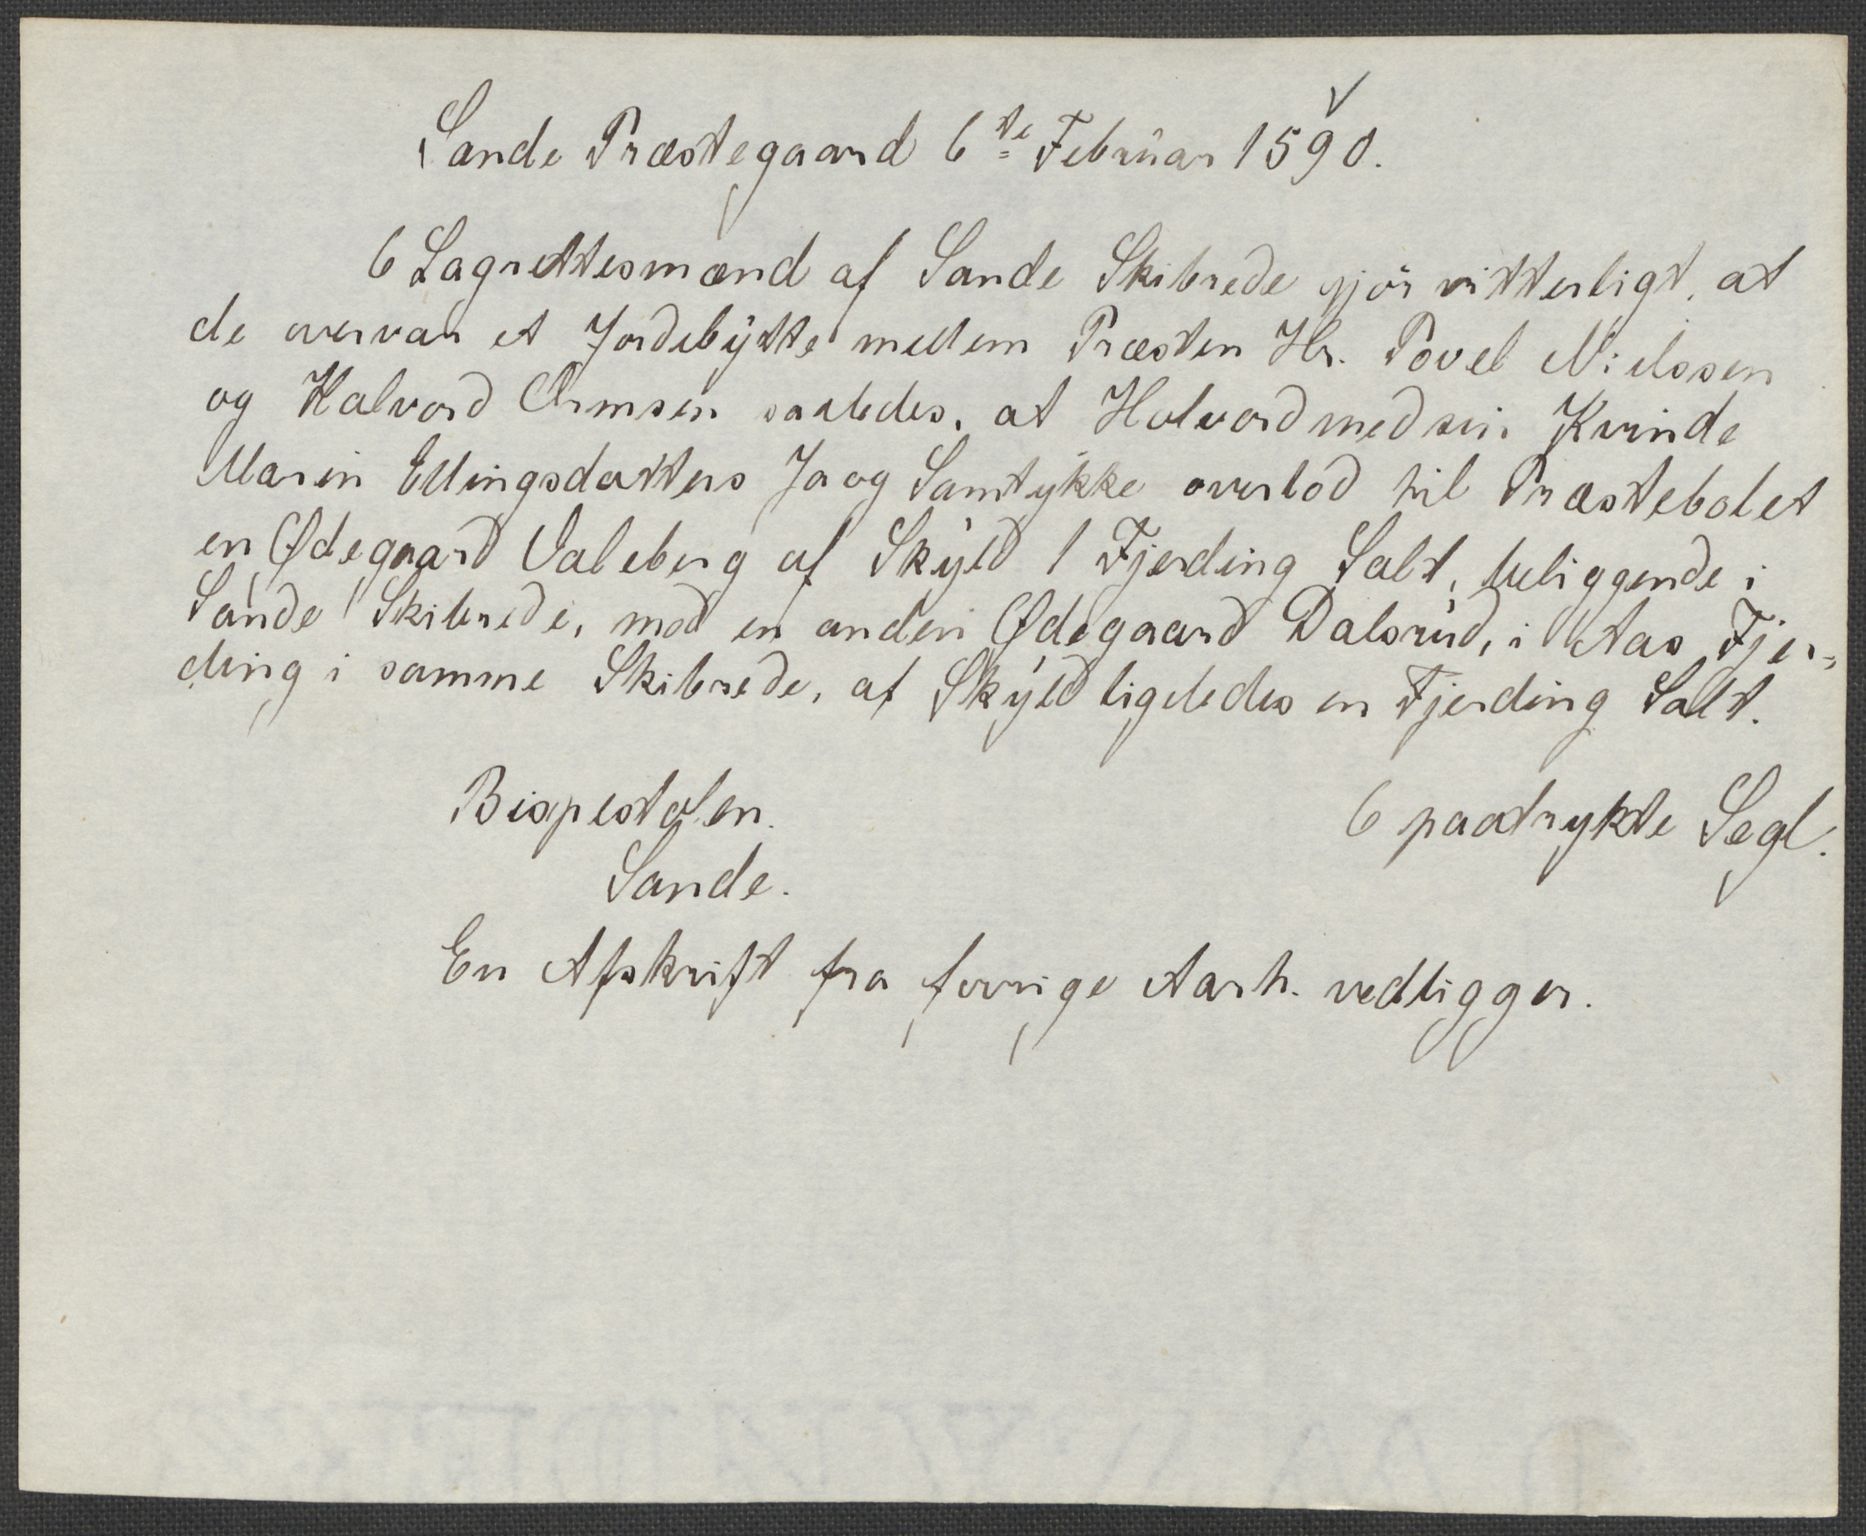 Sande Præstegaard 6te Februar 1590.
6 Lagrettesmænd af Sande Skibrede gjör vitterligt, at
de overvar et Jordebytte mellem Præsten Hr. Povel Nielssen
og Halvord Ormsen saaledes, at Halvord med sin Kvinde
Maren Ellingsdatters Ja og Samtykke overlod til Præstebolet
en Ødegaard Valeberg af Skyld 1 Fjerding Salt, beliggende i
Sande Skibrede, mod en anden Ødegaard Dalsrud, i Aas Fjer-
ding i samme Skibrede, af Skyld ligeledes en Fjerding Salt.
Bispestolen. 6 paatrykte Segl.
Sande.
En Afskrift fra forrige Aarh. vedligger.